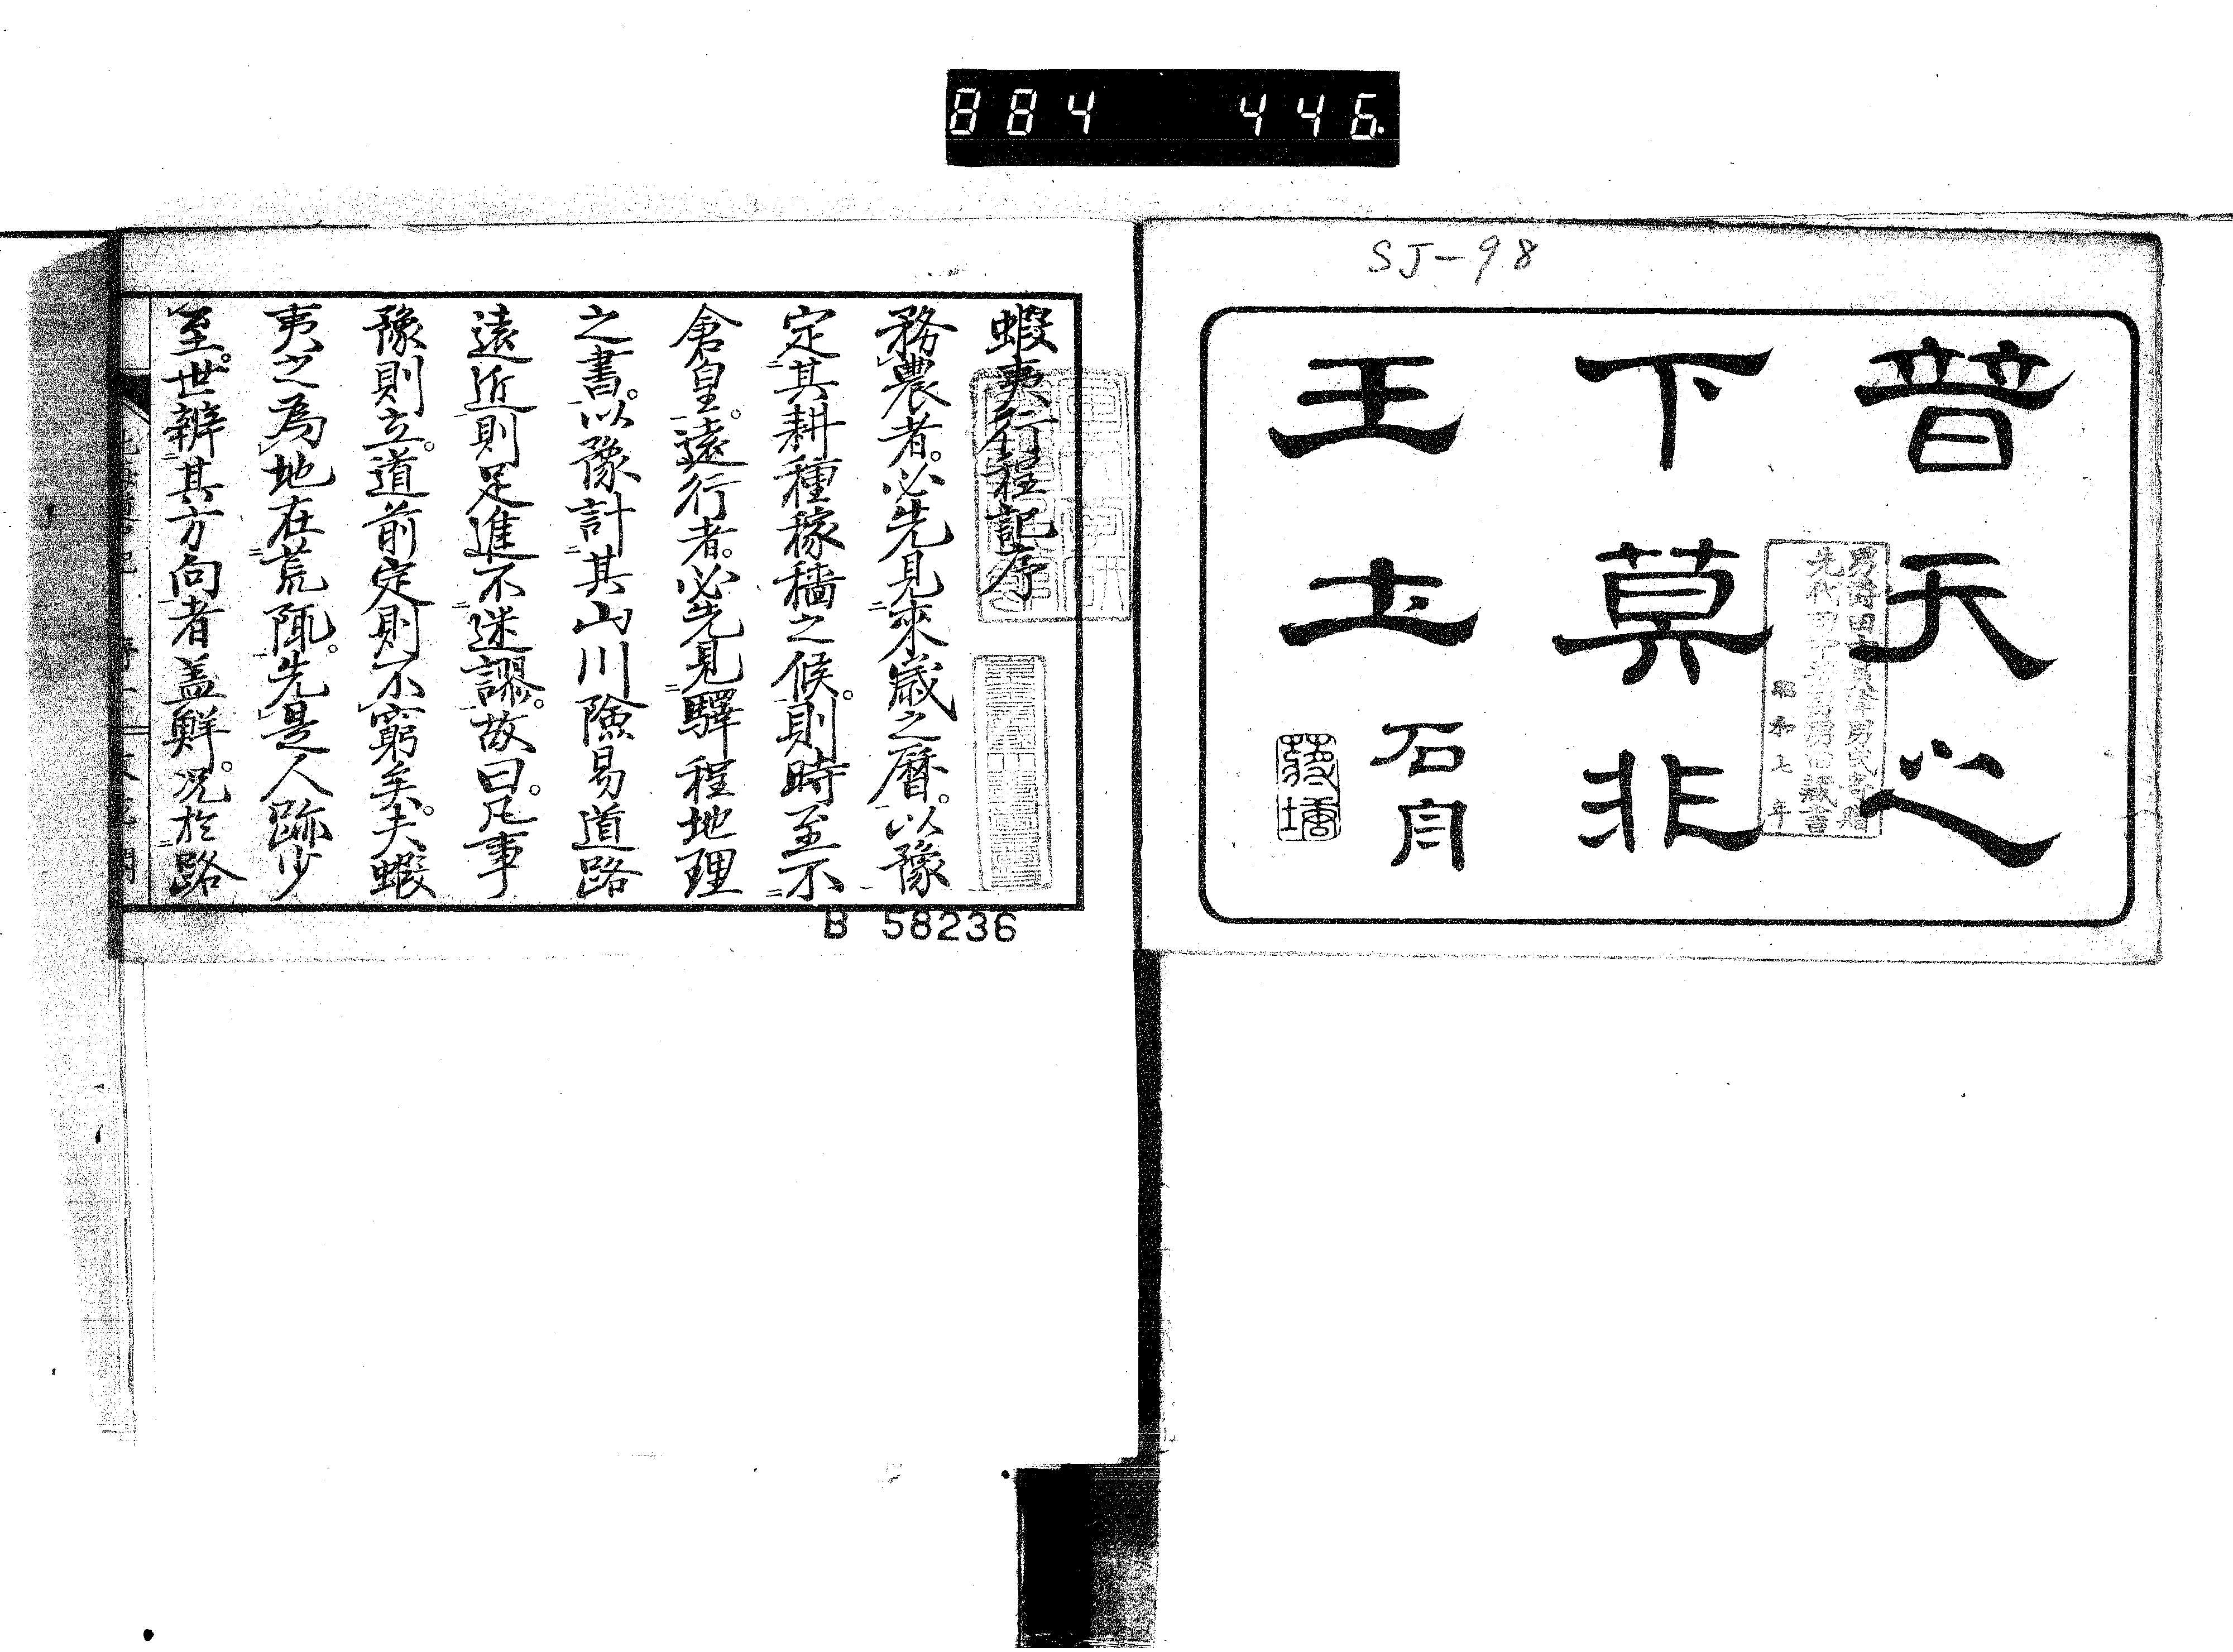 884 446
SJ-98
普天之
下莫非
王土
石舟
男爵田中
先代
昭和七年
蝦夷行程記序
務農者。必先見來歲之曆。以豫
定其耕種稼穡之候。則時至不
倉皇。遠行者。必先見驛程地理
之書。以豫計其山川險易道路
遠近則足進不迷謬。故曰。凡事
豫則立。道前定則不窮矣。夫蝦
夷之爲地在荒陬。先是人跡少
至。世辨其方向者蓋鮮。況於路
B 58236